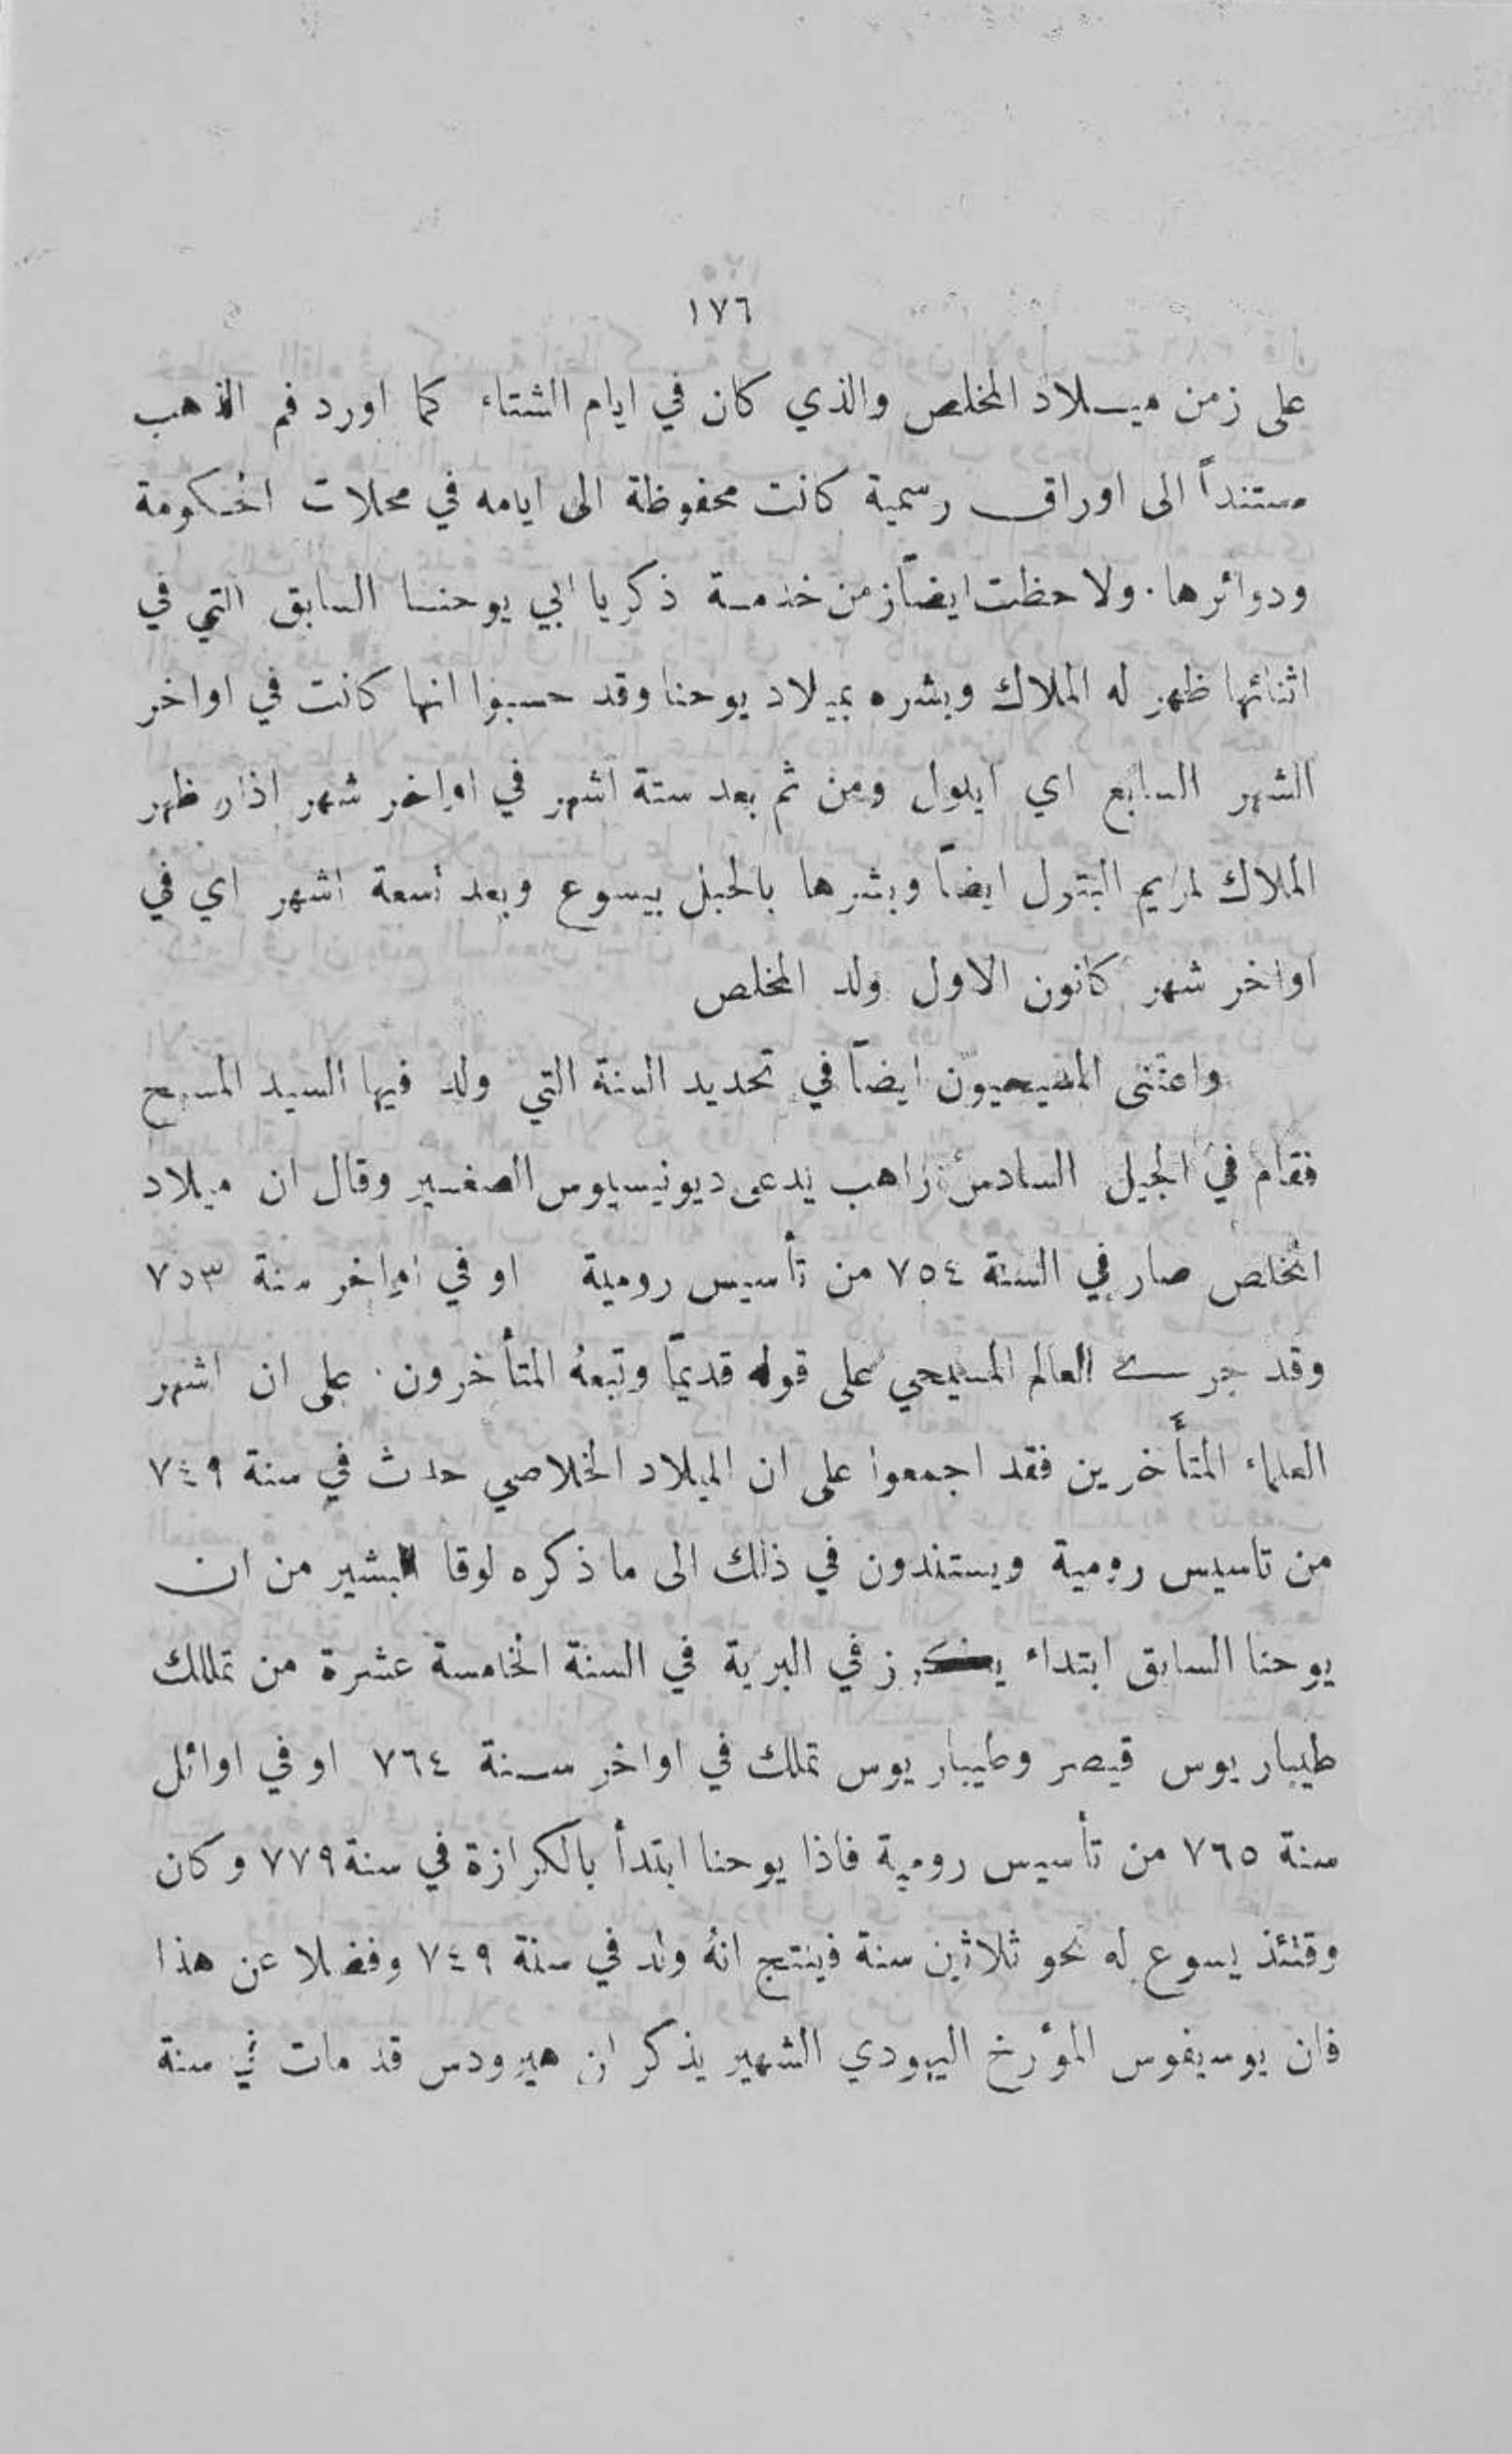 ١٧٦
على زمن ميلاد المخلص والذي كان في ايام الشتاء كما اورد فم الذهب
مستنداً الى اوراق رسمية كانت محفوظة الى ايامه في محلات الحكومة
ودوائرها. ولاحظت ايضاً زمن خدمة ذكريا ابي يوحنا السابق التي في
اثنائها ظهر له الملاك وبشره بميلاد يوحنا وقد حسبوا انها كانت في اواخر
الشهر السابع اي ايلول ومن ثم بعد ستة اشهر في اواخر شهر اذار ظهر
الملاك لمريم البتول ايضاً وبشرها بالحبل بيسوع وبعد تسعة اشهر اي في
اواخر شهر كانون الاول ولد المخلص
واعتنى المسيحيون ايضاً في تحديد السنة التي ولد فيها السيد المسيح
فقام في الجيل السادس راهب يدعى ديونيسيوس الصغير وقال ان ميلاد
المخلص صار في السنة ٧٥٤ من تأسيس رومية او في اواخر سنة ٧٥٣
وقد جرى العالم المسيحي على قوله قديماً وتبعهُ المتأخرون. على ان اشهر
العلماء المتأخرين فقد اجمعوا على ان الميلاد الخلاصي حدث في سنة ٧٤٩
من تاسيس رومية ويستندون في ذلك الى ما ذكره لوقا البشير من ان
يوحنا السابق ابتداء يكرز في البرية في السنة الخامسة عشرة من تملك
طيباريوس قيصر وطيباريوس تملك في اواخر سنة ٧٦٤ او في اوائل
سنة ٧٦٥ من تأسيس رومية فاذا يوحنا ابتدأ بالكرازة في سنة ٧٧٩ وكان
وقتئذ يسوع له نحو ثلاثين سنة فينتج انهُ ولد في سنة ٧٤٩ وفضلا عن هذا
فان يوسيفوس المؤرخ اليهودي الشهير يذكر ان هيرودس قد مات في سنة